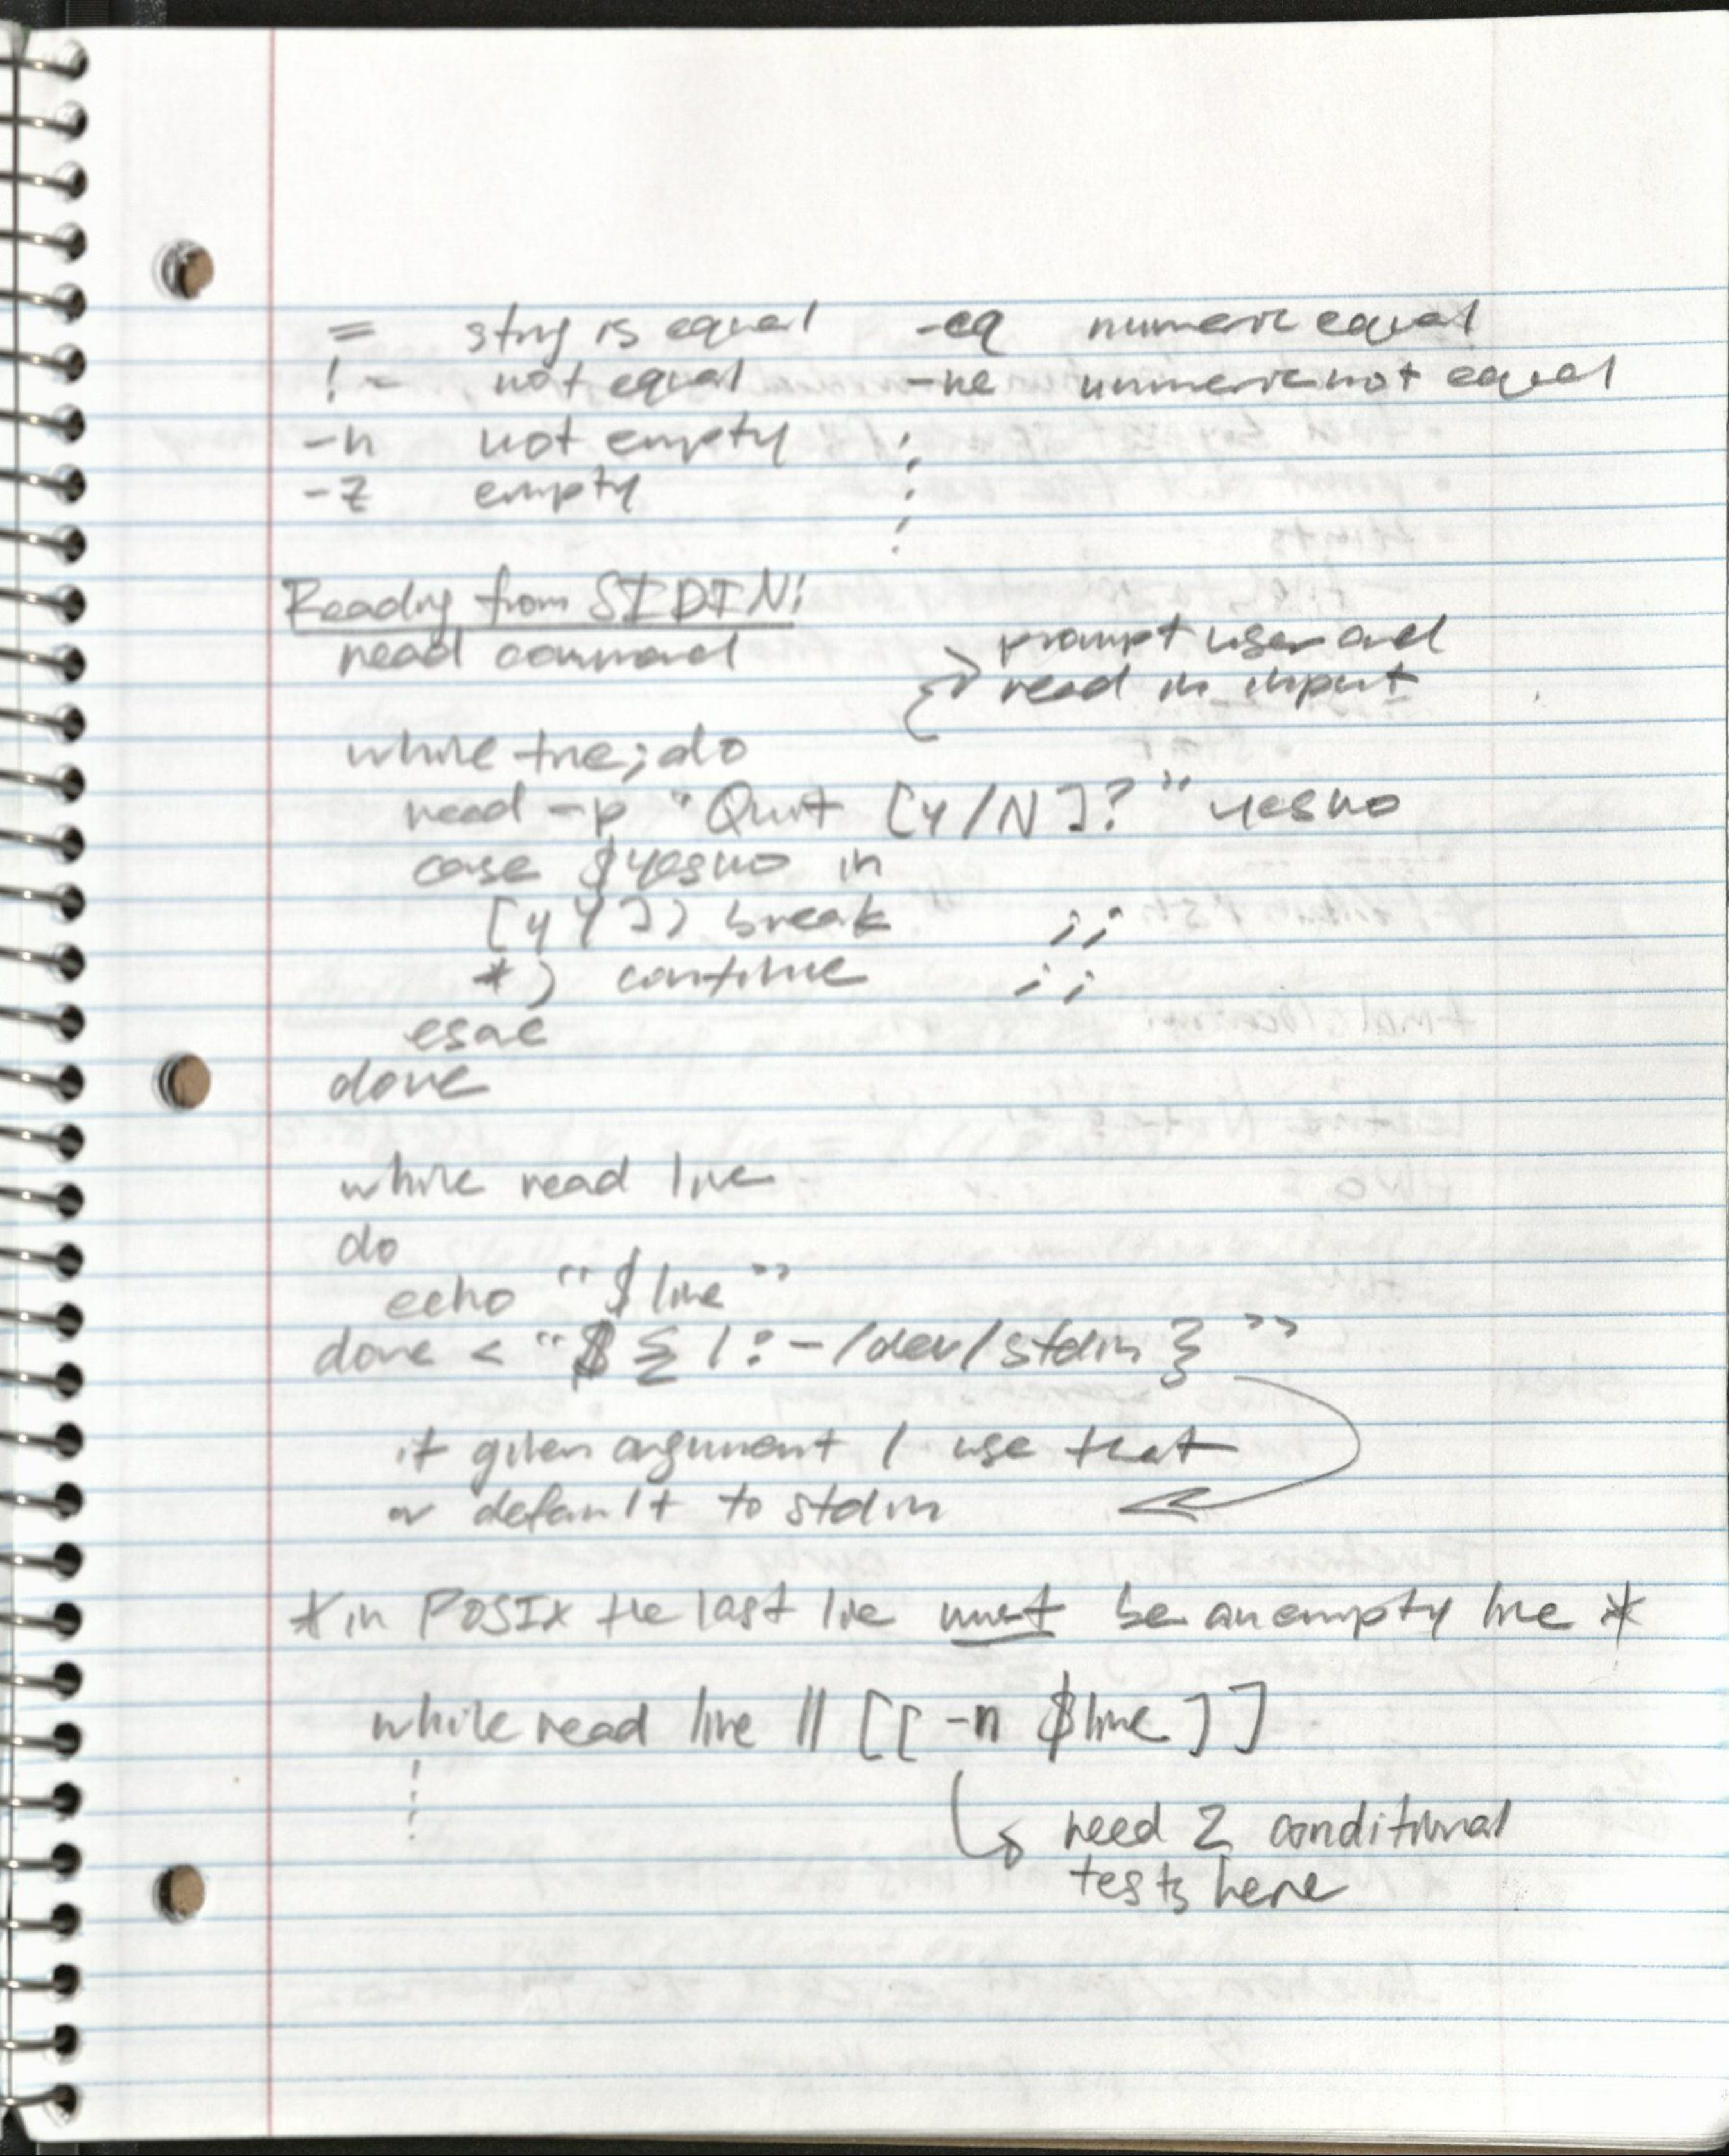 = string is equal -eq numeric equal
!= not equal -ne numeric not equal
-n not empty
-z empty
Reading from STDIN:
read command
prompt user and
read in input
while true; do
read -p "Quit [y/N]?" yesno
case $yesno in
[yY]) break ;;
*) continue ;;
esac
done
while read line
do
echo "$line"
done < "${1:-/dev/stdin}"
if given argument 1 use that
or default to stdin
*in POSIX the last line must be an empty line *
while read line || [[ -n $line ]]
need 2 conditional
tests here